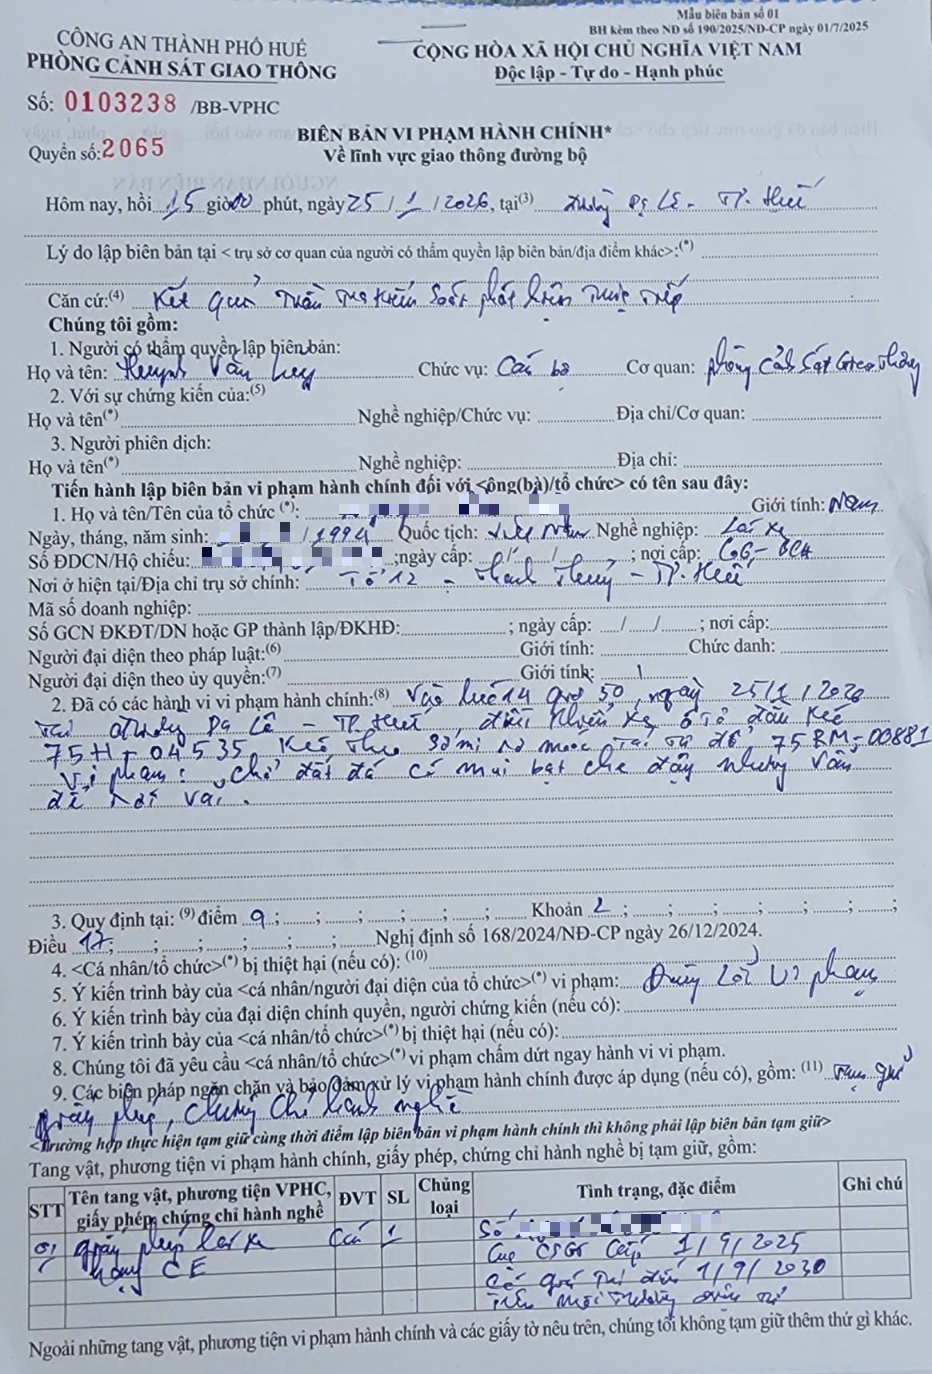 Mẫu biên bản số 01
BH kèm theo NĐ số 190/2025/NĐ-CP ngày 01/7/2025
CÔNG AN THÀNH PHỐ HUẾ
PHÒNG CẢNH SÁT GIAO THÔNG
CỘNG HÒA XÃ HỘI CHỦ NGHĨA VIỆT NAM
Độc lập - Tự do - Hạnh phúc
Số: 0103238 /BB-VPHC
Quyển số: 2065
BIÊN BẢN VI PHẠM HÀNH CHÍNH*
Về lĩnh vực giao thông đường bộ
Hôm nay, hồi 15 giờ 00 phút, ngày 25/1/2026, tại(3) đường Dạ Lê - TP. Huế
Lý do lập biên bản tại < trụ sở cơ quan của người có thẩm quyền lập biên bản/địa điểm khác>:(*)
Căn cứ:(4) Kết quả tuần tra kiểm soát phát hiện trực tiếp
Chúng tôi gồm:
1. Người có thẩm quyền lập biên bản:
Họ và tên: Huỳnh Văn Chức vụ: Cán bộ Cơ quan: phòng Cảnh Sát Giao thông
2. Với sự chứng kiến của:(5)
Họ và tên(*) Nghề nghiệp/Chức vụ: Địa chỉ/Cơ quan:
3. Người phiên dịch:
Họ và tên(*) Nghề nghiệp: Địa chỉ:
Tiến hành lập biên bản vi phạm hành chính đối với <ông(bà)/tổ chức> có tên sau đây:
1. Họ và tên/Tên của tổ chức (*): Giới tính: Nam
Ngày, tháng, năm sinh: /1994 Quốc tịch: Việt Nam Nghề nghiệp: Lái xe
Số ĐDCN/Hộ chiếu: ;ngày cấp: / / ; nơi cấp: BCA
Nơi ở hiện tại/Địa chỉ trụ sở chính: Tổ 12 - Thanh Thuỷ - TP. Huế
Mã số doanh nghiệp:
Số GCN ĐKĐT/DN hoặc GP thành lập/ĐKHĐ: ; ngày cấp: / / ; nơi cấp:
Người đại diện theo pháp luật:(6) Giới tính: Chức danh:
Người đại diện theo ủy quyền:(7) Giới tính:
2. Đã có các hành vi vi phạm hành chính:(8) Vào lúc 14 giờ 50, ngày 25/1/2026
Tại đường Dạ Lê - TP Huế, điều khiển xe ô tô đầu kéo
75H-04535 kéo theo sơ mi rơ moóc tải tự đổ 75RM-00881
Vi phạm: chở đất đá có mui bạt che đậy nhưng vẫn
để rơi vãi.
3. Quy định tại: (9) điểm a; Khoản 2;
Điều 17; Nghị định số 168/2024/NĐ-CP ngày 26/12/2024.
4. <Cá nhân/tổ chức>(*) bị thiệt hại (nếu có): (10)
5. Ý kiến trình bày của <cá nhân/người đại diện của tổ chức>(*) vi phạm: Đúng lỗi vi phạm
6. Ý kiến trình bày của đại diện chính quyền, người chứng kiến (nếu có):
7. Ý kiến trình bày của <cá nhân/tổ chức>(*) bị thiệt hại (nếu có):
8. Chúng tôi đã yêu cầu <cá nhân/tổ chức>(*) vi phạm chấm dứt ngay hành vi vi phạm.
9. Các biện pháp ngăn chặn và bảo đảm xử lý vi phạm hành chính được áp dụng (nếu có), gồm: (11) Tạm giữ
giấy phép, chứng chỉ hành nghề
<Trường hợp thực hiện tạm giữ cùng thời điểm lập biên bản vi phạm hành chính thì không phải lập biên bản tạm giữ>
Tang vật, phương tiện vi phạm hành chính, giấy phép, chứng chỉ hành nghề bị tạm giữ, gồm:
STT Tên tang vật, phương tiện VPHC, giấy phép, chứng chỉ hành nghề ĐVT SL Chủng loại Tình trạng, đặc điểm Ghi chú
01 giấy phép lái xe Cái 1 Số
hạng CE Cục CSGT Cấp 1/9/2025
Có giá trị đến 1/9/2030
Trên môi trường điện tử
Ngoài những tang vật, phương tiện vi phạm hành chính và các giấy tờ nêu trên, chúng tôi không tạm giữ thêm thứ gì khác.